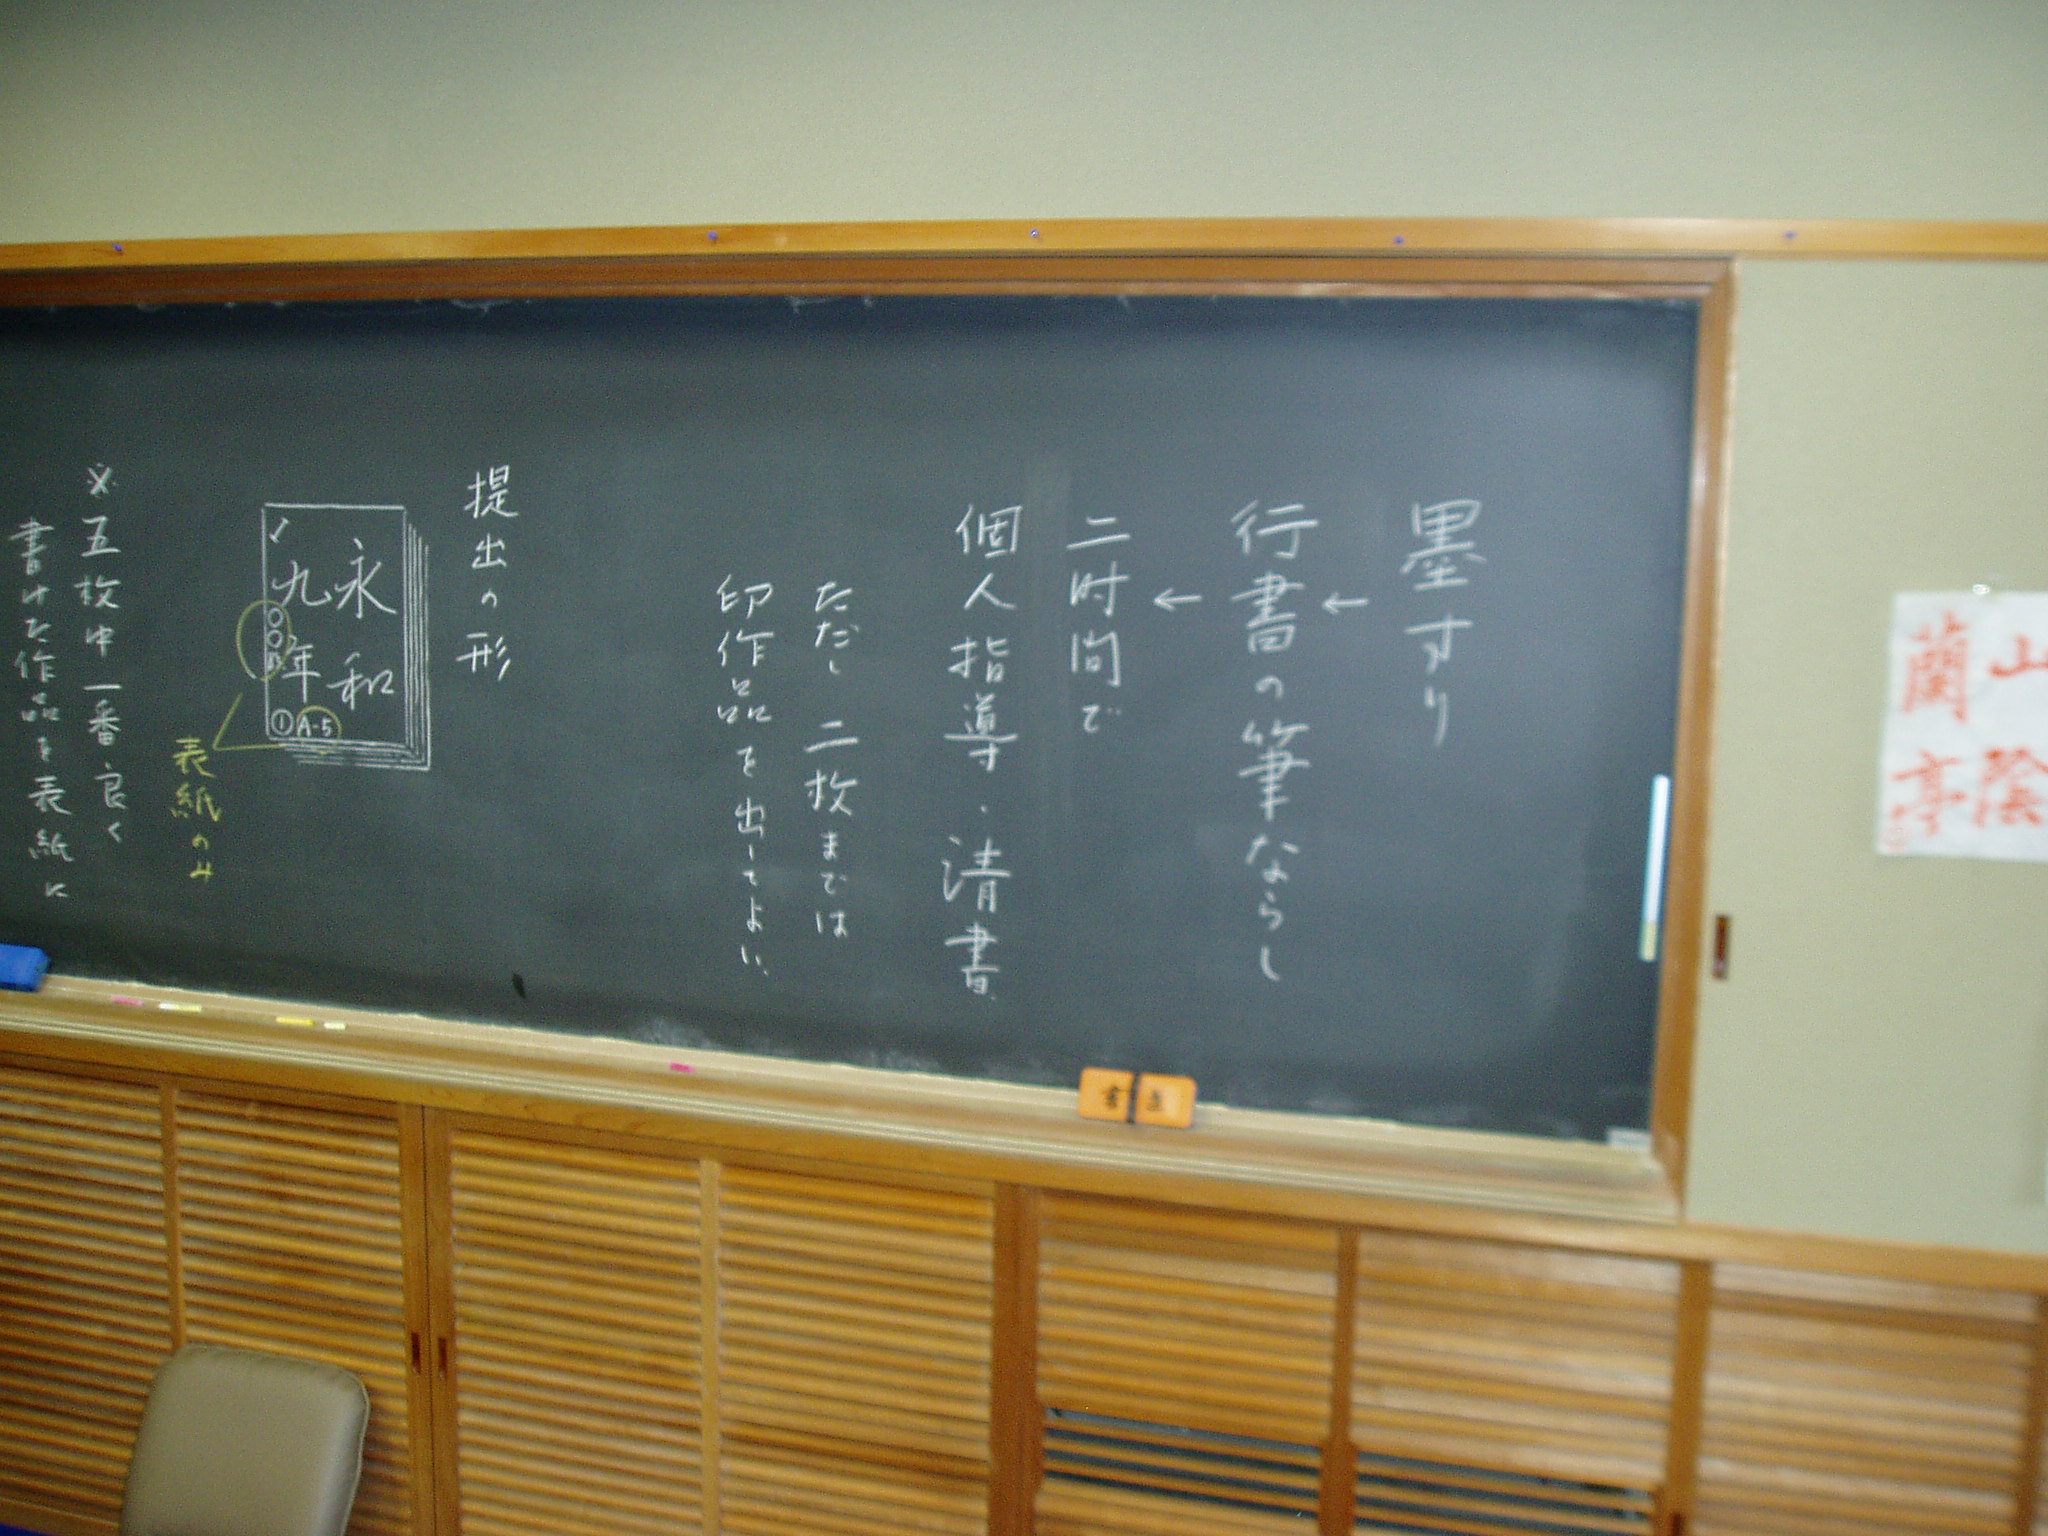 墨すり
←
行書の筆ならし
←
二时间で
個人指導・清書
ただし 二枚までは
印作品を出してよい、
提出の形
永和
九年
①A-5
表紙のみ
※五枚中一番良く
書けた作品を表紙に
山陰
蘭亭